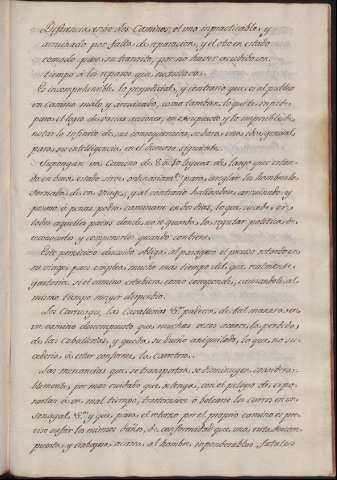 Diferencia entre dos Caminos, el uno impracticable, y
arruinado por falta de reparacion, y el otro en estado
comodo para su transito, por no haver acudido en
tiempo á los reparos que necesitava.
Es incomprehensible lo perjudicial, y contrario que es al publico
un camino malo, y arruinado, como tambien lo que
para el logro de varias acciones, en y lo imposible de
notar lo infinito de sus consequencias, se dara una idea general
para su inteligencia, en el discurso siguiente.
Supongase un Camino de 8 á 10 leguas de largo que estan-
do en buen estado sirve ordinariam.te para arreglar los hombres la
Jornada de un dia, y al contrario hallandose arruinado, y
pesimo á penas podra caminarse en dos dias, lo que sucede en
todos aquellos paises donde no se guarda la regular politica de
reconocerlo y componerlos quando conviene.
Este perjuicio dicho obliga al pasagero el preciso retardo en
su viage para emplear mucho mas tiempo del que realmente
gastaria si el camino estubiera como corresponde, causandole al
mismo tiempo mayor dispendio.
Los Carruages, las Cavallerias &.a padecen de tal manera en
un camino descompuesto que muchas veces causa la perdida
de las Caballerias, y queda su dueño aniquilado, lo que no su-
cederia á estar conforme la Carretera.
Las mercancias que se transportan se disminuyen considera-
blemente, por mas cuidado que se tenga, con el peligro de espo-
nerlas á un mal tiempo, trastornarse ó bolcarse los carros en un
&.a y que para el retorno por el propio camino es pre-
ciso sufrir los mismos daños, de conformidad que una ruta descom-
puesta, y trabajosa acarrea al hombre imponderables fatales